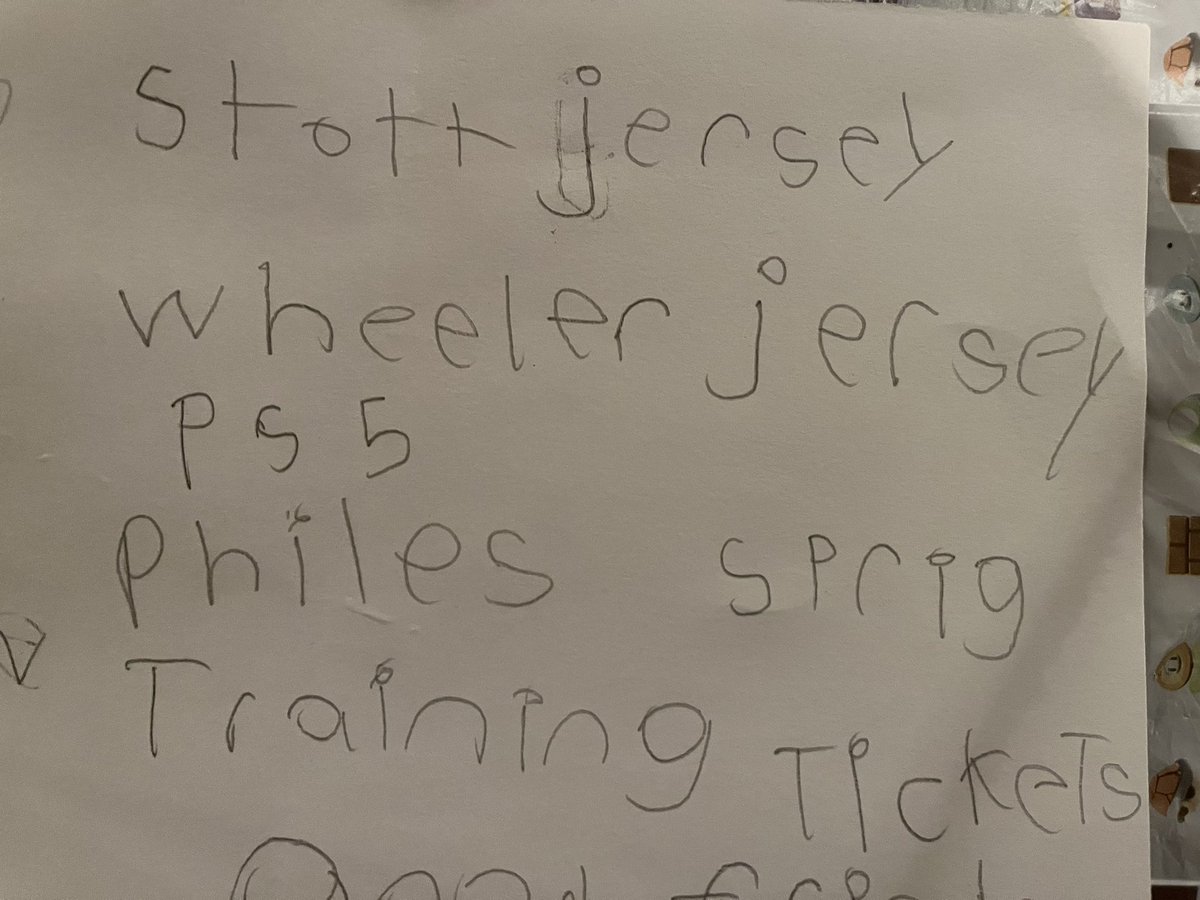 Stott jersey
wheeler jersey
PS5
Philes sprig
Training TickeTs